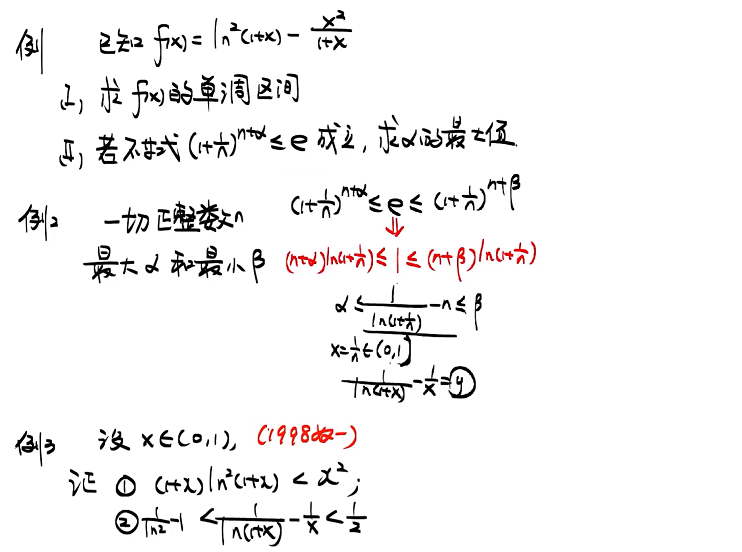 例1 已知 f(x) = ln²(1+x) - x²/(1+x)
I, 求 f(x)的单调区间
II, 若不等式 (1+1/n)^(n+α) ≤ e 成立, 求α的最大值.
例2 一切正整数n (1+1/n)^(n+α) ≤ e ≤ (1+1/n)^(n+β)
最大 α 和最小 β (n+α)ln(1+1/n) ≤ 1 ≤ (n+β)ln(1+1/n)
α ≤ 1/ln(1+1/n) - n ≤ β
x = 1/n ∈ (0,1]
1/ln(1+x) - 1/x = y
例3 设 x∈(0,1), (1998数一)
证 ① (1+x)ln²(1+x) < x²;
② 1/ln2 - 1 < 1/ln(1+x) - 1/x < 1/2